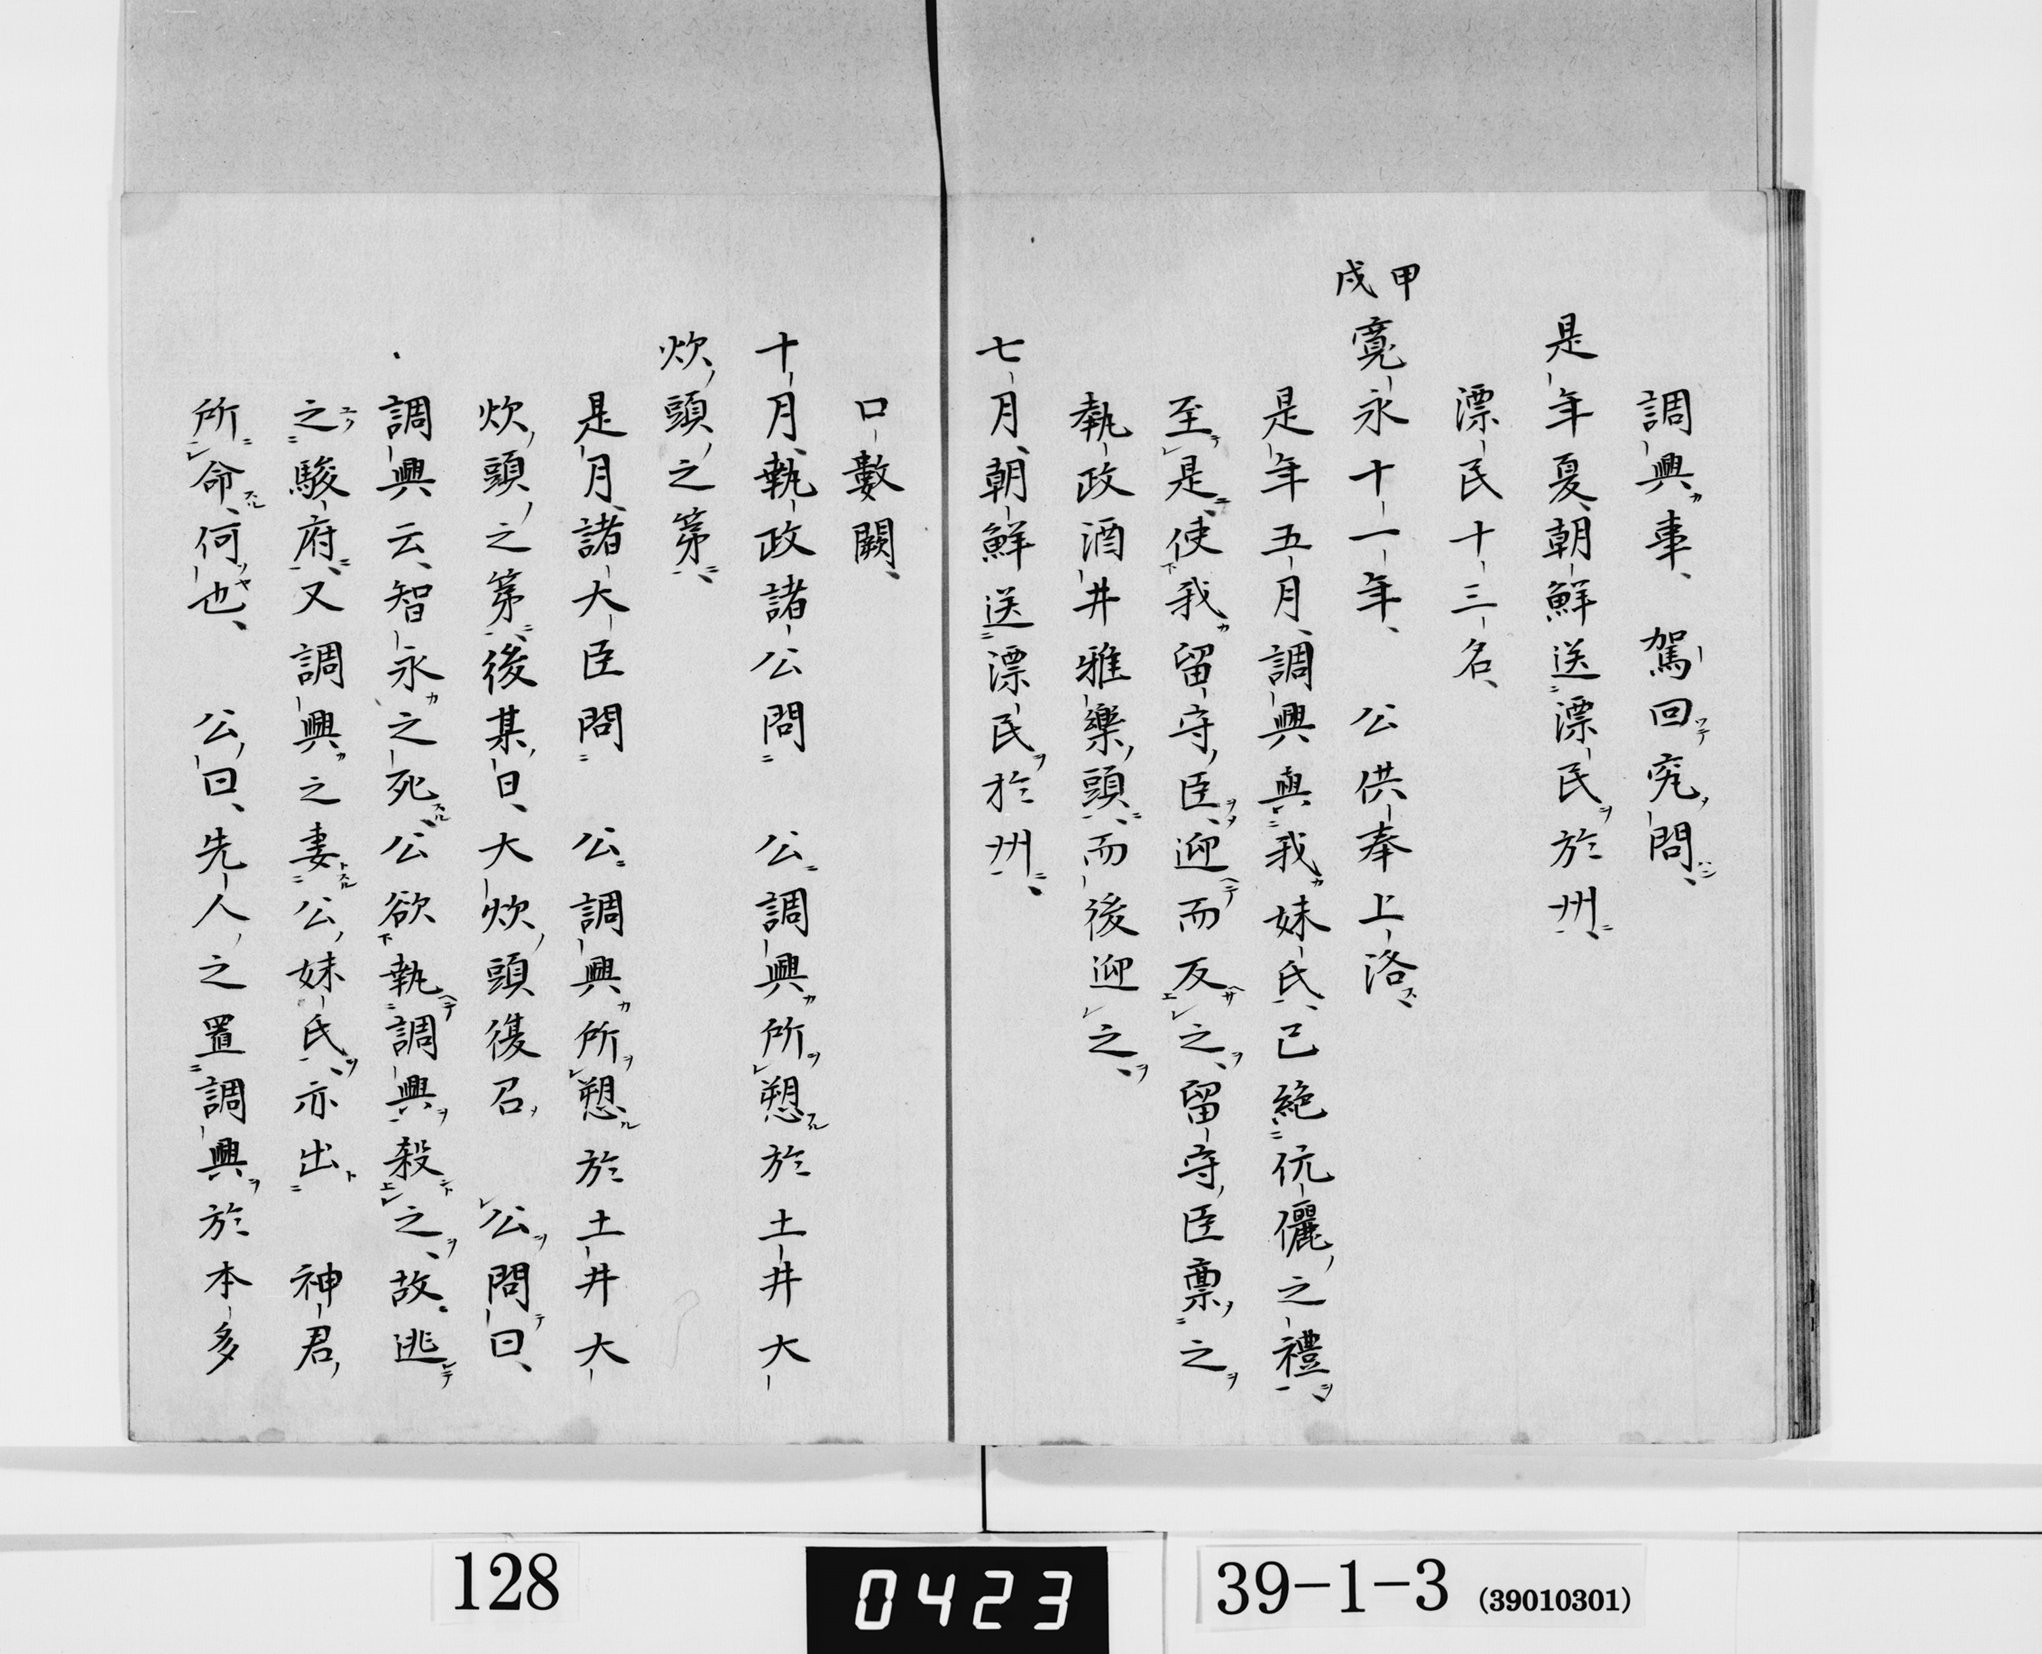 調興事、　駕回究問、
是年夏、朝鮮送漂民於州、
漂民十三名、
甲戌
寛永十一年、　公供奉上洛、
是年五月、調興與我妹氏、已絶伉儷之禮、
至是、使我留守臣、迎而反之、留守臣稟之
執政酒井雅樂頭、而後迎之、
七月、朝鮮送漂民於州、
口數闕、
十月、執政諸公問　公調興所愬於土井大
炊頭之第、
是月、諸大臣問　公調興所愬於土井大
炊頭之第、後某日、大炊頭復召　公問曰、
調興云、智永之死、公欲執調興殺之、故逃
之駿府、又調興之妻公妹氏、亦出　神君
所命、何也、　公曰、先人之置調興於本多
128
0423
39-1-3 (39010301)